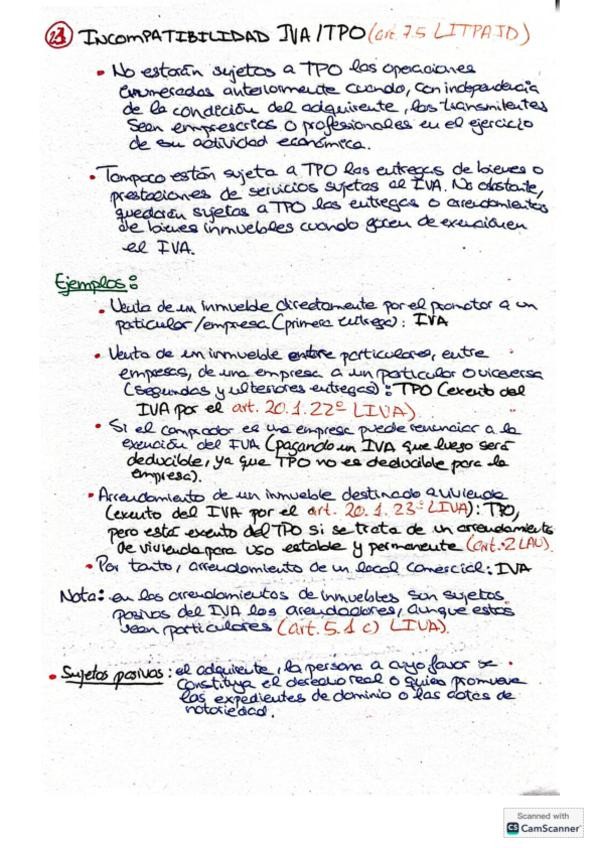 2.3 INCOMPATIBILIDAD IVA/TPO (art. 7.5 LITPAJD)
• No estarán sujetos a TPO las operaciones
enumeradas anteriormente cuando, con independencia
de la condición del adquirente, los transmitentes
sean empresarios o profesionales en el ejercicio
de su actividad económica.
• Tampoco están sujeta a TPO las entregas de bienes o
prestaciones de servicios sujetas al IVA. No obstante,
quedarán sujetas a TPO las entregas o arrendamientos
de bienes inmuebles cuando gocen de exención en
el IVA.
Ejemplos:
• Venta de un inmueble directamente por el promotor a un
paticular/empresa (primera entrega): IVA
• Venta de un inmueble entre particulares, entre
empresas, de una empresa a un particular o viceversa
(segundas y ulteriores entregas): TPO (exento del
IVA por el art. 20.1.22º LIVA).
• Si el comprador es una empresa puede renunciar a la
exención del IVA (pagando un IVA que luego será
deducible, ya que TPO no es deducible para la
empresa).
• Arrendamiento de un inmueble destinado a vivienda
(exento del IVA por el art. 20.1.23º LIVA): TPO,
pero está exento del TPO si se trata de un arrendamiento
de vivienda para uso estable y permanente (art. 2 LAU).
• Por tanto, arrendamiento de un local comercial: IVA
Nota: en los arrendamientos de inmuebles son sujetos
pasivos del IVA los arrendadores, aunque estos
sean particulares (art. 5.1 c) LIVA).
• Sujetos pasivos: el adquirente, la persona a cuyo favor se
constituya el derecho real o quien promueva
los expedientes de dominio o las actas de
notoriedad.
Scanned with
CS CamScanner